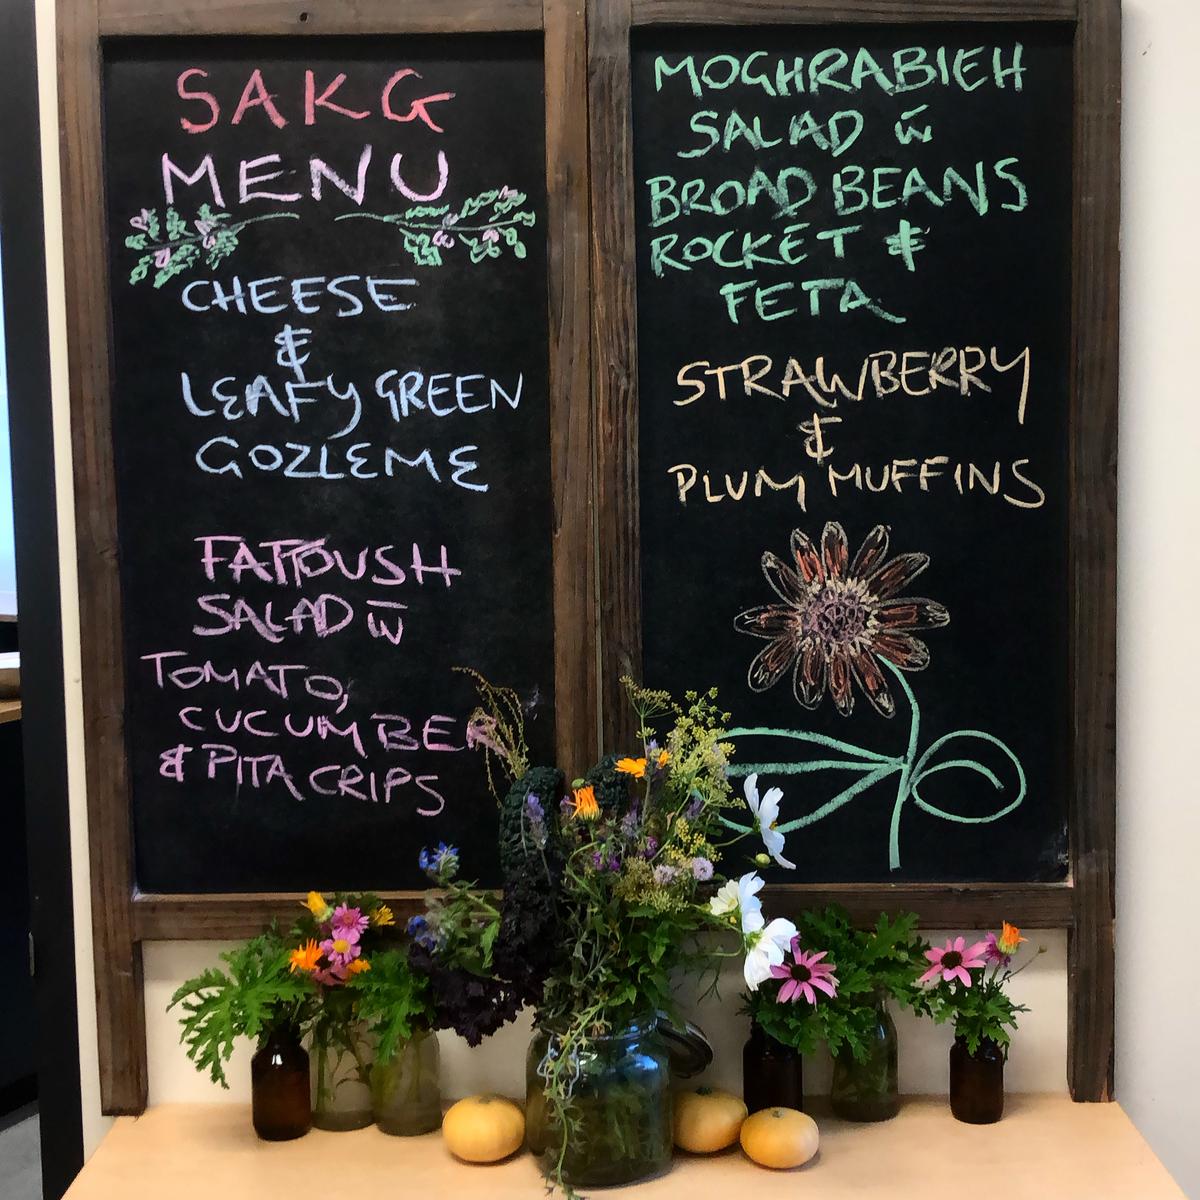 SAKG
MENU
CHEESE
&
LEAFY GREEN
GOZLEME
FATTOUSH
SALAD w̄
TOMATO,
CUCUMBER
& PITA CRIPS
MOGHRABIEH
SALAD w̄
BROAD BEANS
ROCKET &
FETA
STRAWBERRY
&
PLUM MUFFINS